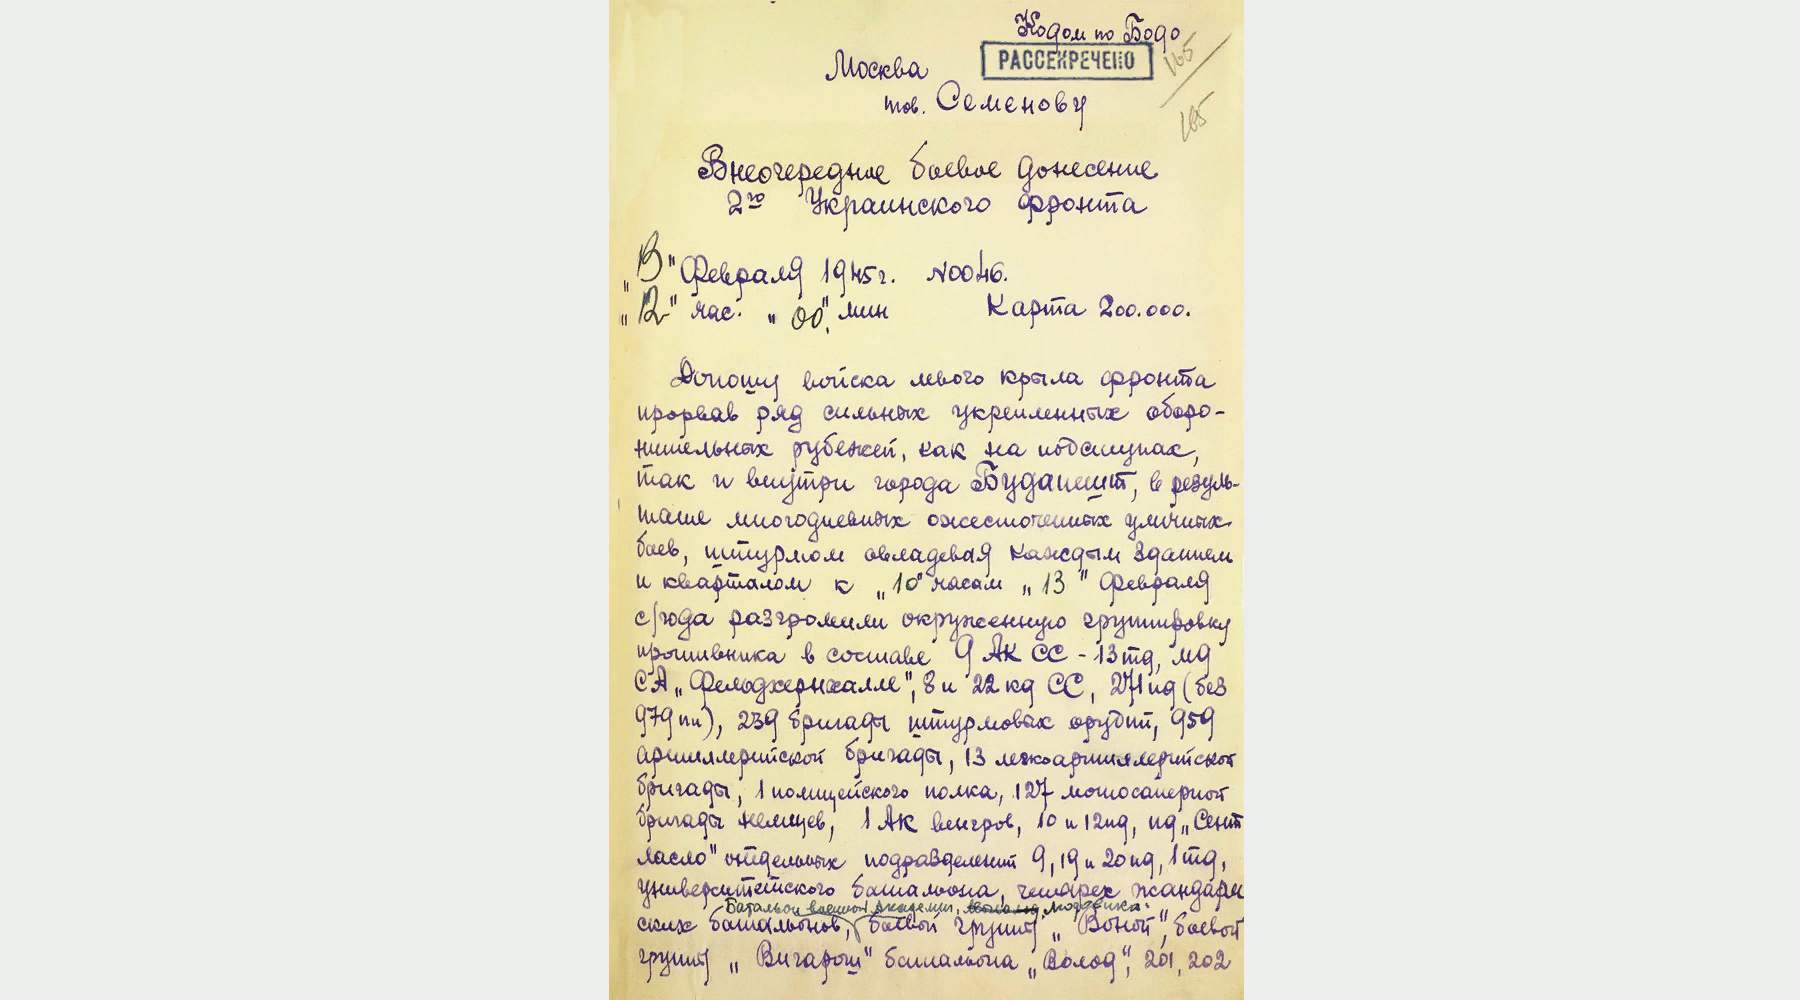 Кодом по Бодо
РАССЕКРЕЧЕНО
165
Москва
тов. Семенову
165
Внеочередное боевое донесение
2го Украинского фронта
„13" Февраля 1945г. N0046.
„12" час. „00" мин Карта 200.000.
Доношу войска левого крыла фронта
прорвав ряд сильных укрепленных оборо-
нительных рубежей, как на подступах,
так и внутри города Будапешт, в резуль-
тате многодневных ожесточенных уличных
боев, штурмом овладевая каждым зданием
и кварталом к „10" часам „13" Февраля
с/года разгромили окруженную группировку
противника в составе 9 АК СС - 13тд, мд
СА „Фельдхернхалле", 8 и 22 кд СС, 271 пд (без
979 пп), 239 бригады штурмовых орудий, 959
артиллерийской бригады, 13 легкоартиллерийской
бригады, 1 полицейского полка, 127 мотосаперной
бригады немцев, 1 АК венгров, 10 и 12пд, пд „Сент
ласло" отдельных подразделений 9, 19 и 20 пд, 1тд,
университетского батальона, четырех жандарм
Батальон военной Академии,
ских батальонов, боевой группы „Воной", боевой
группы „Вигарош" батальона „Волод", 201, 202